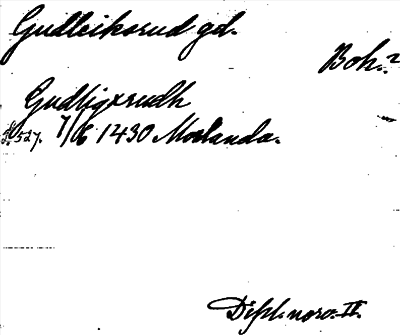 Gudleiksrud gd.
Boh.?
Gudligxrudh
s. 527. 7/6 1430 Morlanda.
Dipl. norv. II.